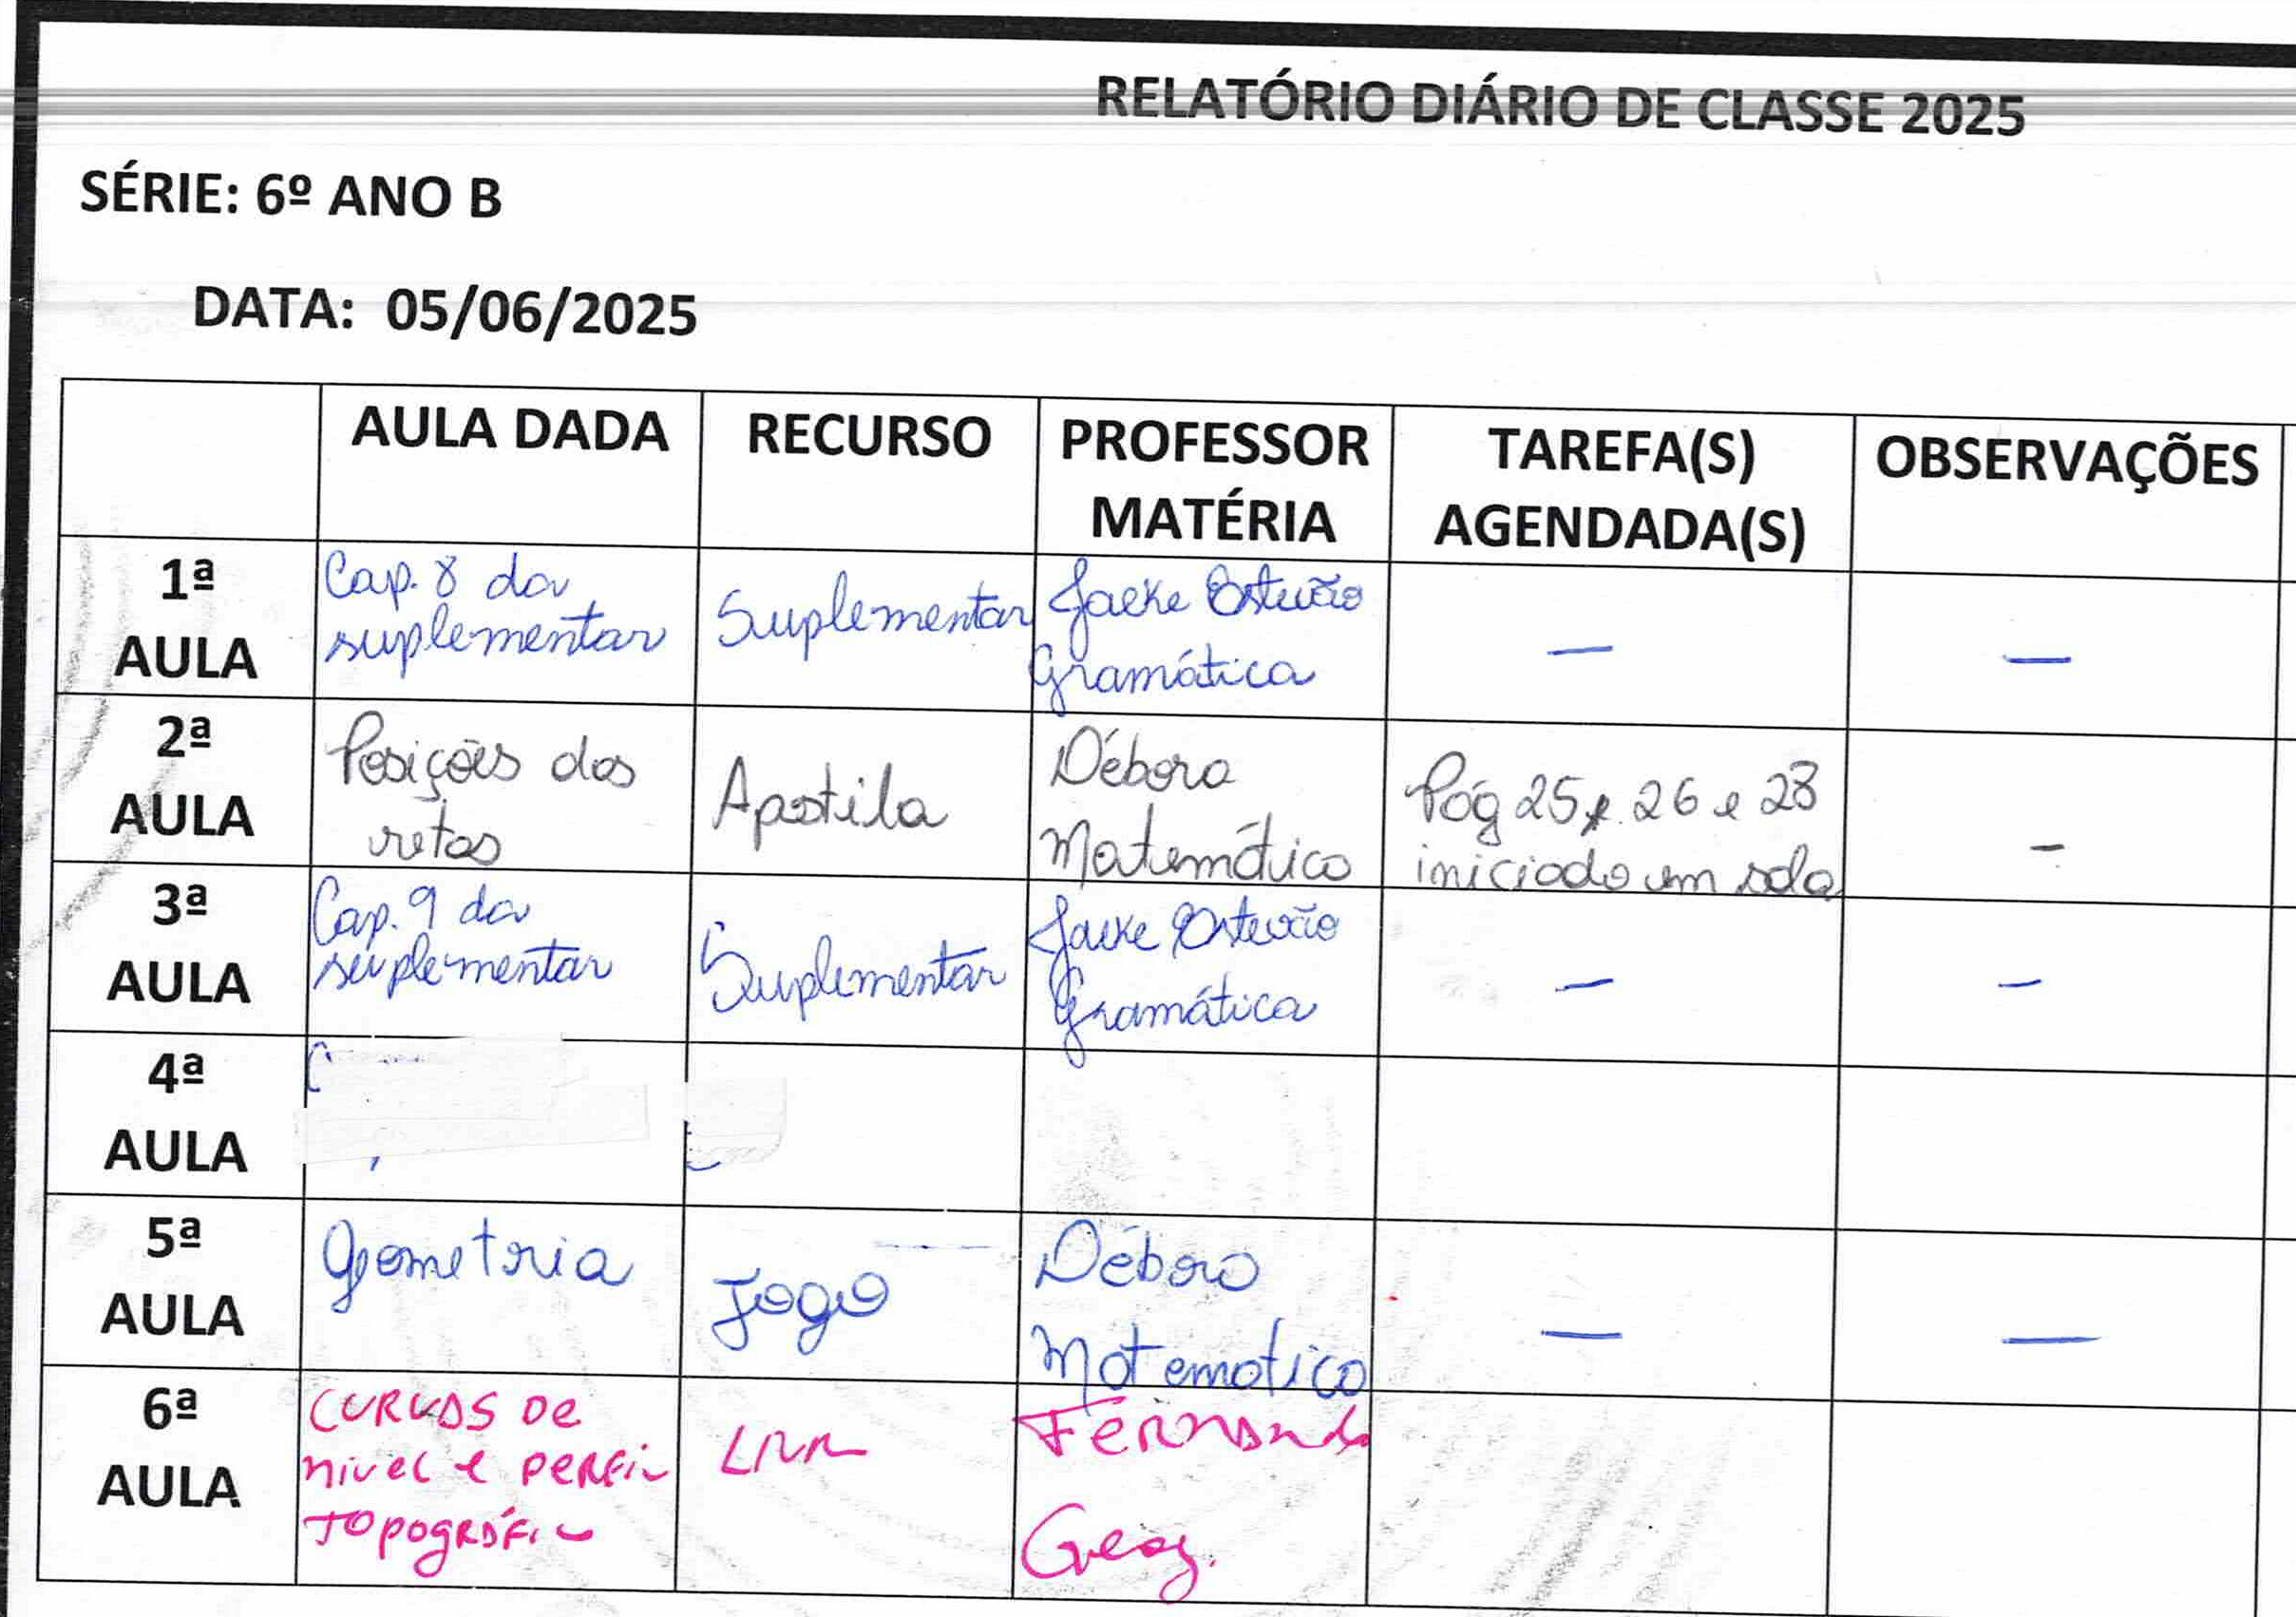 RELATÓRIO DIÁRIO DE CLASSE 2025
SÉRIE: 6º ANO B
DATA: 05/06/2025
AULA DADA
RECURSO
PROFESSOR
MATÉRIA
TAREFA(S)
AGENDADA(S)
OBSERVAÇÕES
1ª
AULA
Cap. 8 da
suplementar
Suplementar
Estevão
Gramática
—
—
2ª
AULA
Posições das
retas
Apostila
Débora
Matemática
Pág 25, 26 e 28
iniciado em sala
-
3ª
AULA
Cap. 9 da
suplementar
Suplementar
Estevão
Gramática
—
—
4ª
AULA
5ª
AULA
Geometria
Jogo
Débora
Matemática
—
—
6ª
AULA
CURVAS DE
NÍVEL E PERFIL
TOPOGRÁFICO
Fernando
Geog.